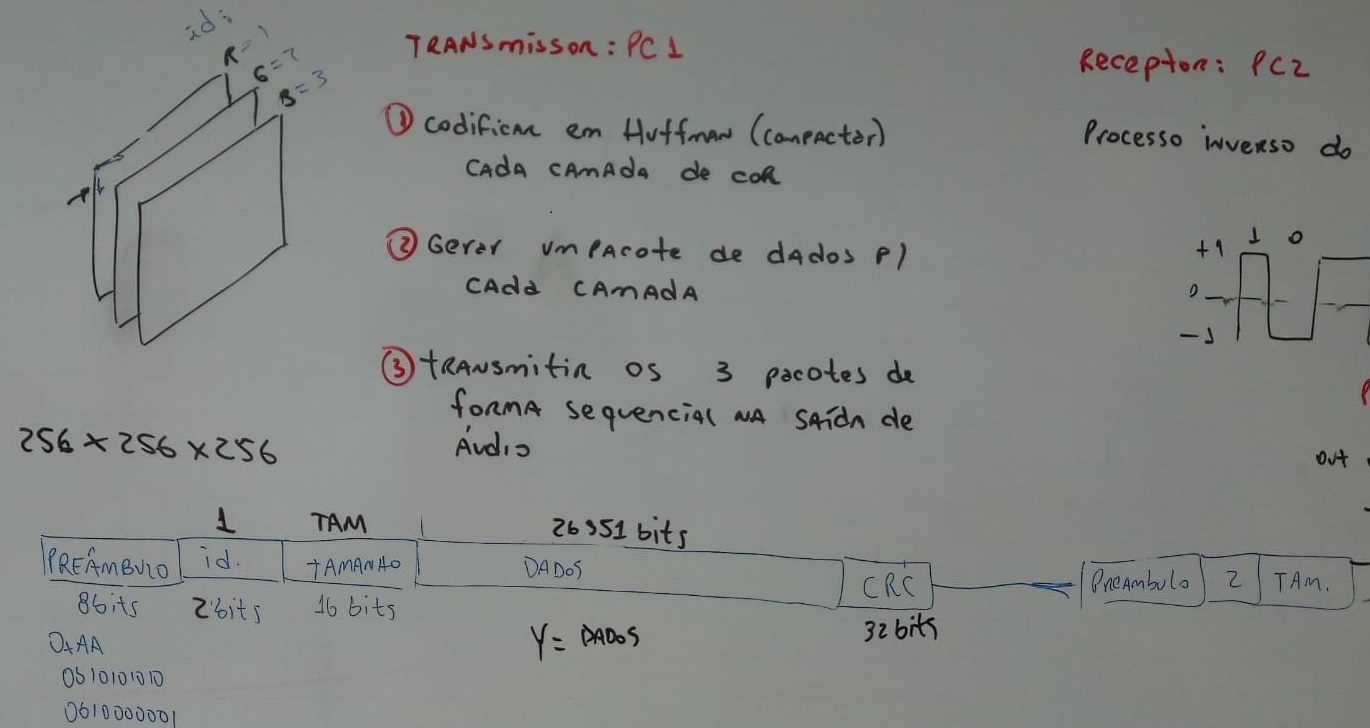 id:
R=1
G=2
B=3
TRANSMISSOR: PC1
① Codificar em Huffman (compactar)
cada camada de cor
② Gerar um pacote de dados p/
cada camada
③ transmitir os 3 pacotes de
forma sequencial na saída de
Áudio
Receptor: PC2
Processo inverso do
1 0
+1
0
-1
out
256 x 256 x 256
1 TAM 26951 bits
PREÂMBULO id. TAMANHO DADOS CRC Preambulo 2 TAM.
8bits 2 bits 16 bits Y= DADOS 32 bits
0xAA
0b10101010
0b10000001